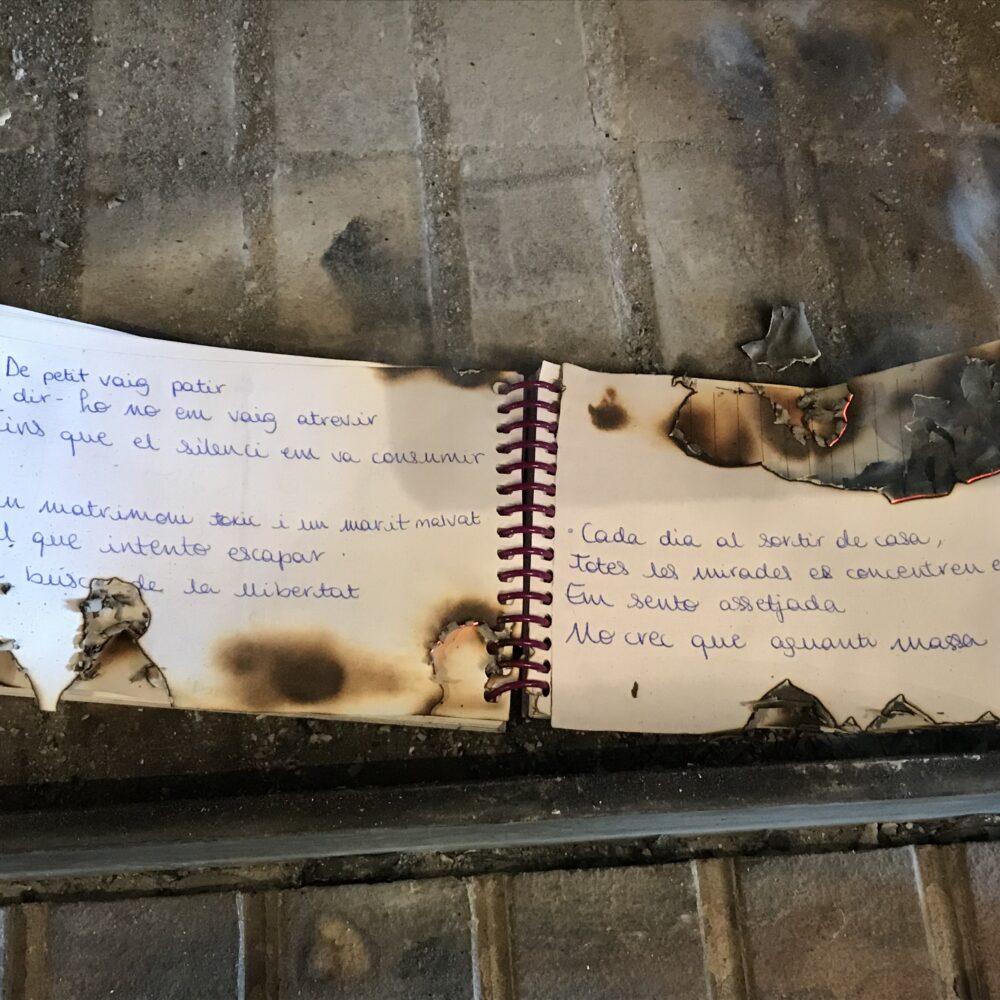 De petit vaig patir
dir-ho no em vaig atrevir
ins que el silenci em va consumir
matrimoni toxic i un marit malvat
que intento escapar
busca de la llibertat
· Cada dia al sortir de casa,
Totes les mirades es concentren e
Em sento assetjada
No crec que aguanti massa